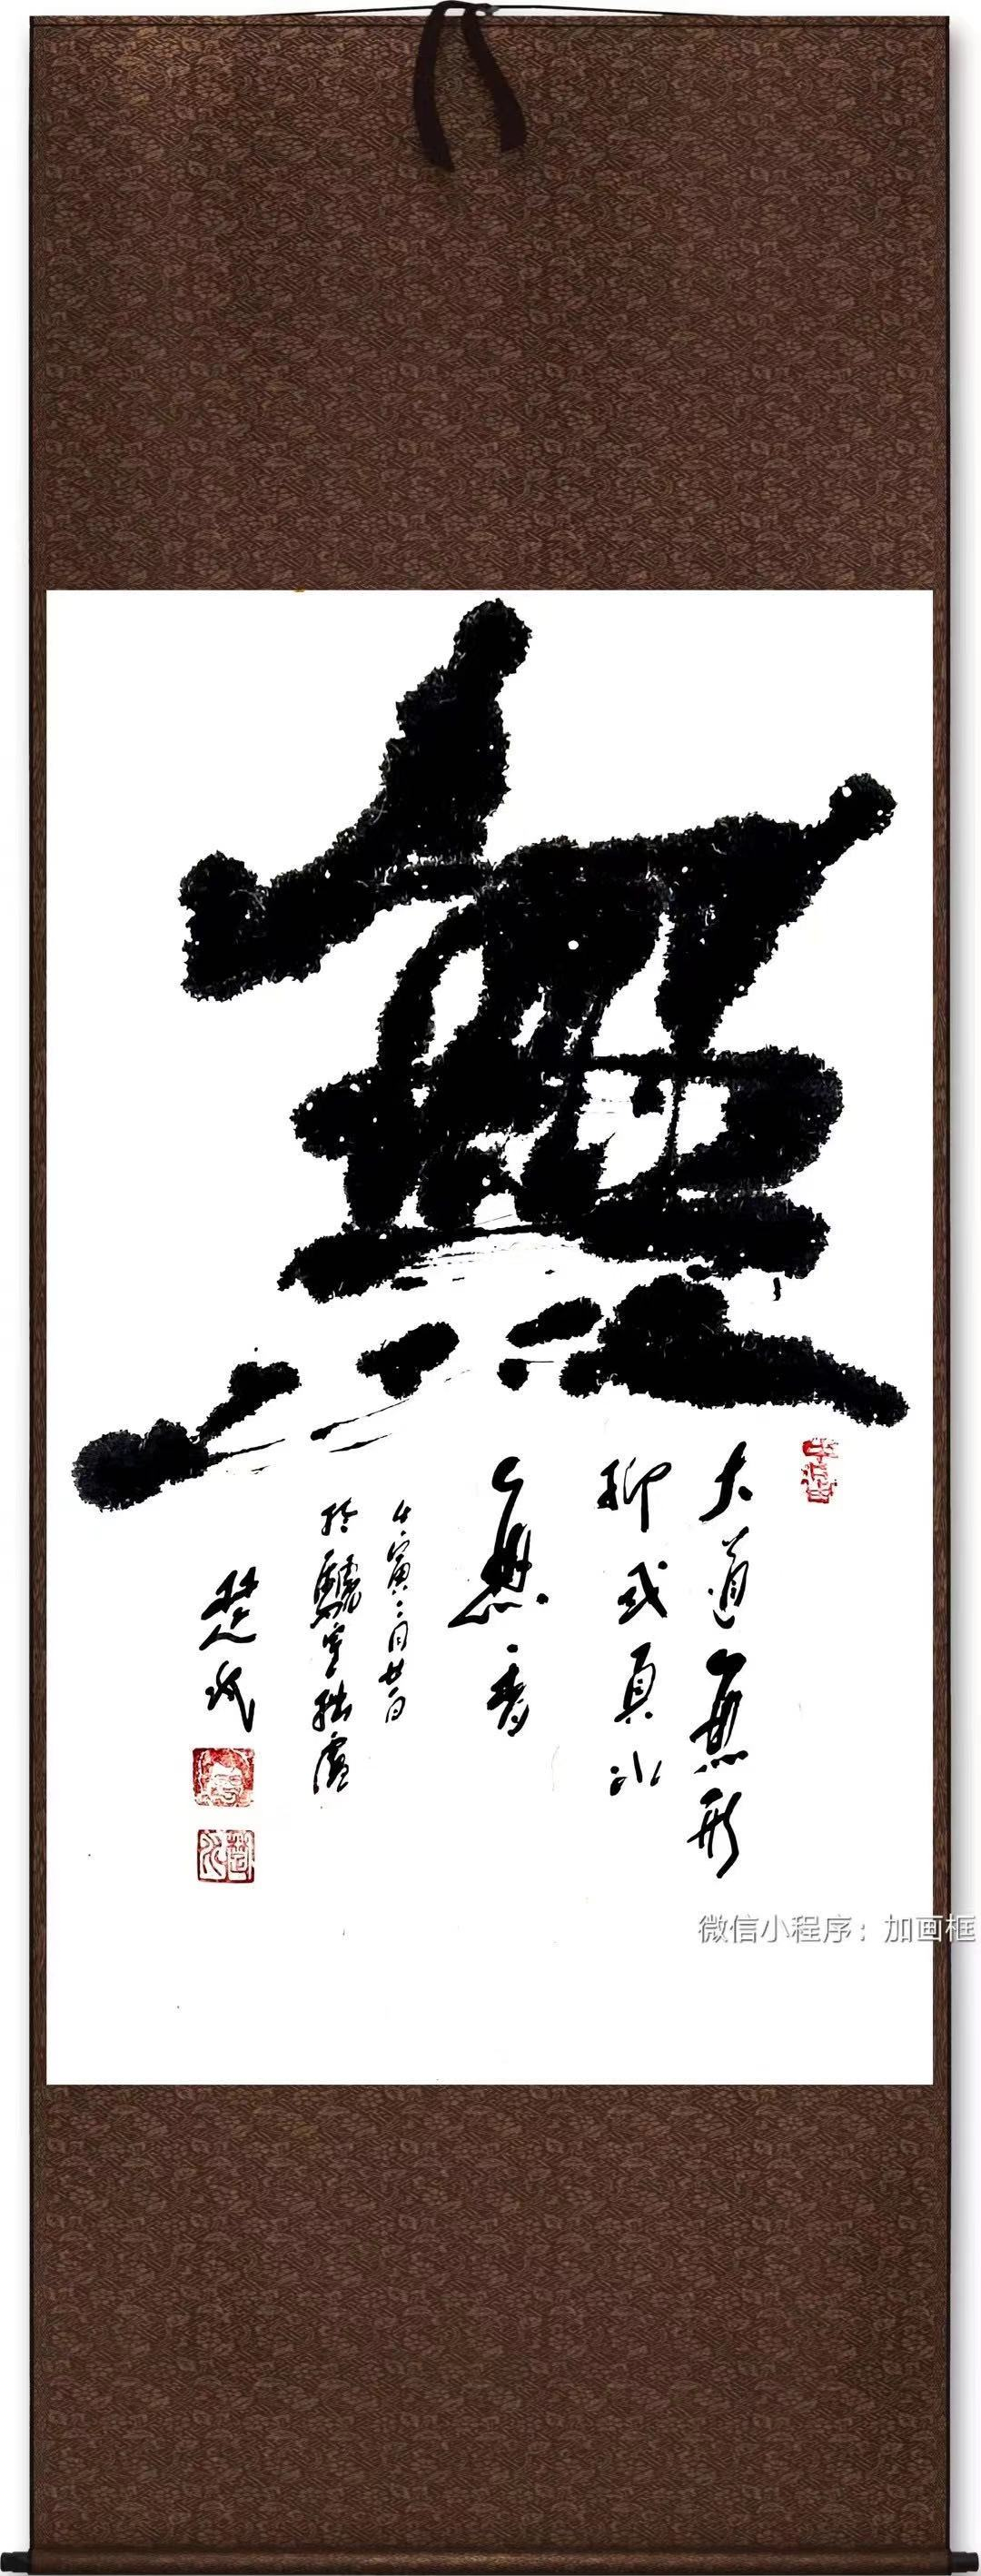 無
大道無形
抑或真水
無香
壬寅二月廿二日
於驕宇拙廬
楚成
微信小程序：加画框